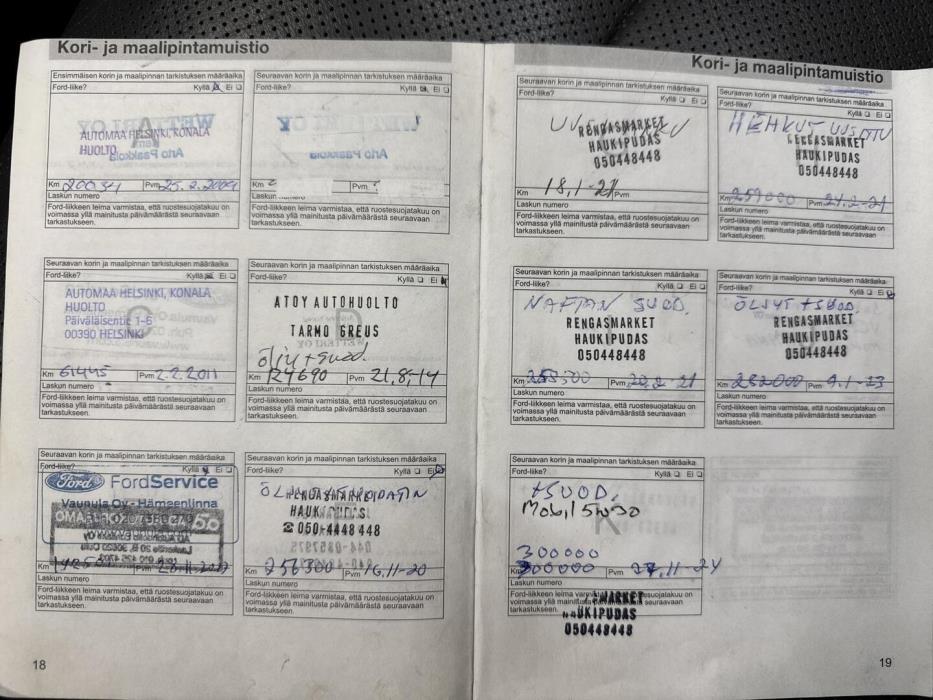 Kori- ja maalipintamuistio
Ensimmäisen korin ja maalipinnan tarkistuksen määräaika
Ford-liike? Kyllä Ei
AUTOMAA HELSINKI, KONALA
HUOLTO
Km Pvm 25.2.2009
Laskun numero
Ford-liikkeen leima varmistaa, että ruostesuojatakuu on
voimassa yllä mainitusta päivämäärästä seuraavaan
tarkastukseen.
Seuraavan korin ja maalipinnan tarkistuksen määräaika
Ford-liike? Kyllä Ei
Km ? Pvm ?
Laskun numero
Ford-liikkeen leima varmistaa, että ruostesuojatakuu on
voimassa yllä mainitusta päivämäärästä seuraavaan
tarkastukseen.
Seuraavan korin ja maalipinnan tarkistuksen määräaika
Ford-liike? Kyllä Ei
AUTOMAA HELSINKI, KONALA
HUOLTO
Päiväläisentie 1-6
00390 HELSINKI
Km 61445 Pvm 2.2.2011
Laskun numero
Ford-liikkeen leima varmistaa, että ruostesuojatakuu on
voimassa yllä mainitusta päivämäärästä seuraavaan
tarkastukseen.
Seuraavan korin ja maalipinnan tarkistuksen määräaika
Ford-liike? Kyllä Ei
ATOY AUTOHUOLTO
TARMO GREUS
öljy + suod.
Km 124690 Pvm 21,8,-14
Laskun numero
Ford-liikkeen leima varmistaa, että ruostesuojatakuu on
voimassa yllä mainitusta päivämäärästä seuraavaan
tarkastukseen.
Seuraavan korin ja maalipinnan tarkistuksen määräaika
Ford-liike? Kyllä Ei
Ford FordService
Vaunula Oy - Hämeenlinna
Km Pvm
Laskun numero
Ford-liikkeen leima varmistaa, että ruostesuojatakuu on
voimassa yllä mainitusta päivämäärästä seuraavaan
tarkastukseen.
Seuraavan korin ja maalipinnan tarkistuksen määräaika
Ford-liike? Kyllä Ei
RENGASMARKET
HAUKIPUDAS
☎ 050-4448 448
Km 256300 Pvm 16,11-20
Laskun numero
Ford-liikkeen leima varmistaa, että ruostesuojatakuu on
voimassa yllä mainitusta päivämäärästä seuraavaan
tarkastukseen.
18
Kori- ja maalipintamuistio
Seuraavan korin ja maalipinnan tarkistuksen määräaika
Ford-liike? Kyllä Ei
RENGASMARKET
HAUKIPUDAS
050448448
Km 18,1-21 Pvm
Laskun numero
Ford-liikkeen leima varmistaa, että ruostesuojatakuu on
voimassa yllä mainitusta päivämäärästä seuraavaan
tarkastukseen.
Seuraavan korin ja maalipinnan tarkistuksen määräaika
Ford-liike? Kyllä Ei
HEHKUT UUSITTU
RENGASMARKET
HAUKIPUDAS
050448448
Km 259000 Pvm
Laskun numero
Ford-liikkeen leima varmistaa, että ruostesuojatakuu on
voimassa yllä mainitusta päivämäärästä seuraavaan
tarkastukseen.
Seuraavan korin ja maalipinnan tarkistuksen määräaika
Ford-liike? Kyllä Ei
NAFTAN SUOD.
RENGASMARKET
HAUKIPUDAS
050448448
Km Pvm
Laskun numero
Ford-liikkeen leima varmistaa, että ruostesuojatakuu on
voimassa yllä mainitusta päivämäärästä seuraavaan
tarkastukseen.
Seuraavan korin ja maalipinnan tarkistuksen määräaika
Ford-liike? Kyllä Ei
ÖLJYT + SUOD.
RENGASMARKET
HAUKIPUDAS
050448448
Km 282000 Pvm 9.1-23
Laskun numero
Ford-liikkeen leima varmistaa, että ruostesuojatakuu on
voimassa yllä mainitusta päivämäärästä seuraavaan
tarkastukseen.
Seuraavan korin ja maalipinnan tarkistuksen määräaika
Ford-liike? Kyllä Ei
+SUOD.
Mobil 5w30
300000
Km 300000 Pvm 27,11-24
Laskun numero
Ford-liikkeen leima seuraavaan
tarkastukseen.
HAUKIPUDAS
050448448
19